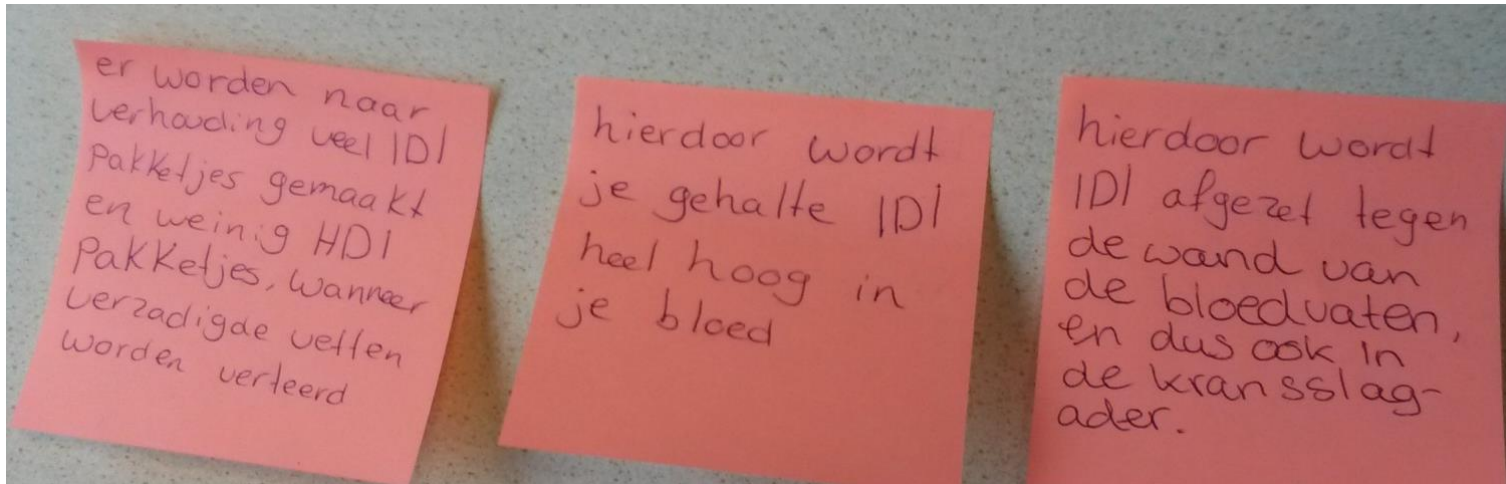 er worden naar
verhouding veel lDl
pakketjes gemaakt
en weinig HDl
pakketjes, wanneer
verzadigde vetten
worden verteerd
hierdoor wordt
je gehalte lDl
heel hoog in
je bloed
hierdoor wordt
lDl afgezet tegen
de wand van
de bloedvaten,
en dus ook in
de kransslag-
ader.